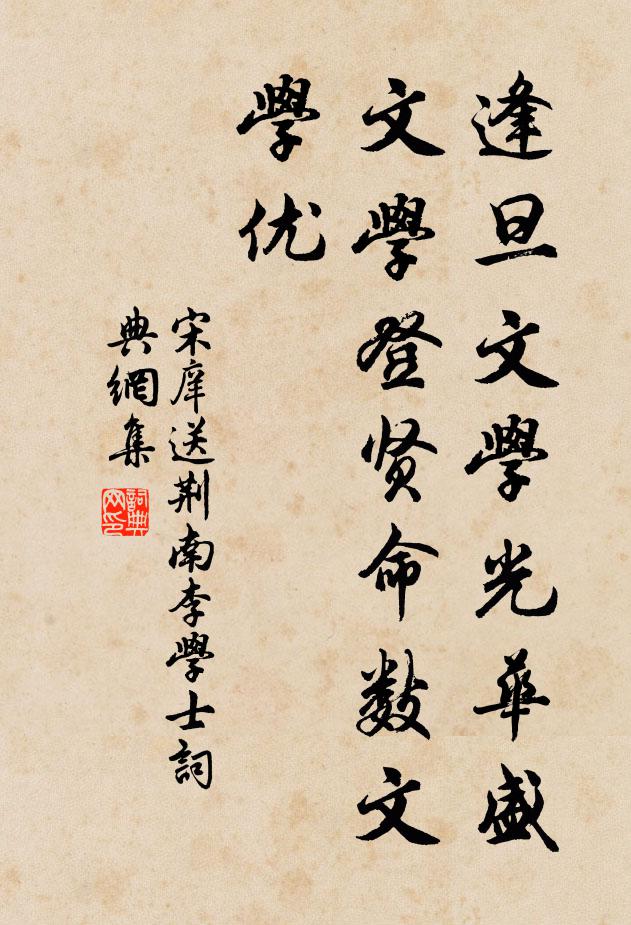 逢旦文學光華盛
文學登贤命数文
學优
宋庠送荆南李學士詞
典網集
詞典网印